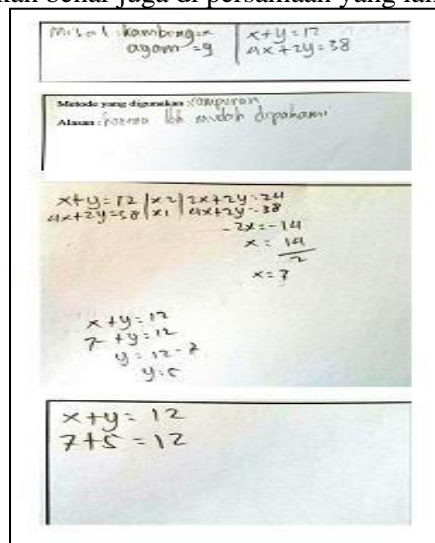 kan benar juga di persamaan yang lain
Misal : kambing = x
ayam = y
x + y = 12
4x + 2y = 38
Metode yang digunakan : campuran
Alasan : karena lbh mudah dipahami
x + y = 12 | x 2 | 2x + 2y = 24
4x + 2y = 38 | x 1 | 4x + 2y = 38
-2x = -14
x = 14
2
x = 7
x + y = 12
7 + y = 12
y = 12 - 7
y = 5
x + y = 12
7 + 5 = 12